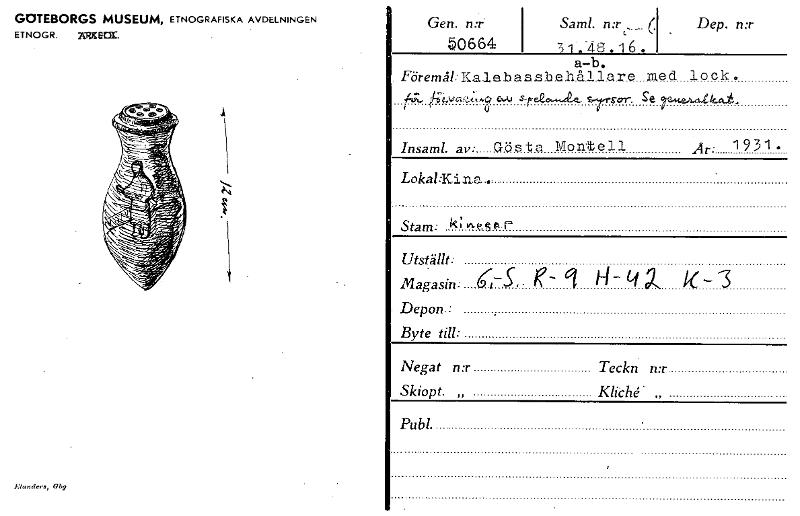 GÖTEBORGS MUSEUM, ETNOGRAFISKA AVDELNINGEN
ETNOGR. ARKEOL.
12 cm.
Elanders, Gbg
Gen. n:r Saml. n:r Dep. n:r
50664 31.48.16.
a-b.
Föremål: Kalebassbehållare med lock.
för förvaring av spelande syrsor. Se generalkat.
Insaml. av: Gösta Montell År: 1931.
Lokal: Kina.
Stam: kineser
Utställt:
Magasin: G-S R-9 H-42 K-3
Depon:
Byte till:
Negat n:r Teckn n:r
Skiopt. „ Kliché „
Publ.